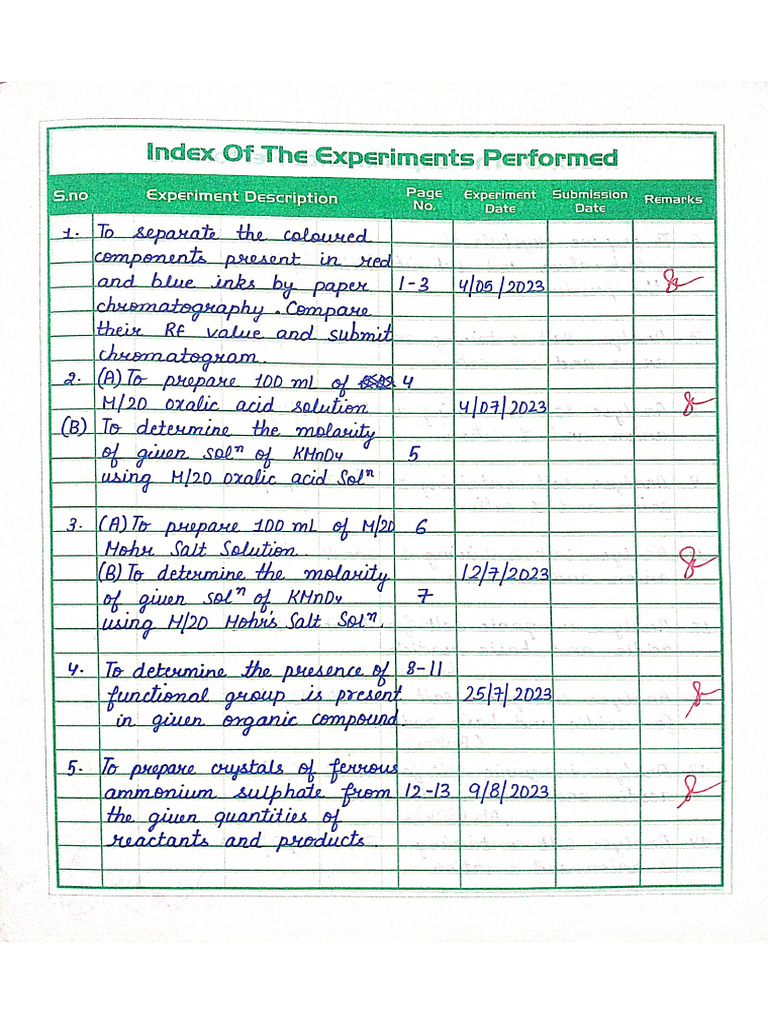 Index Of The Experiments Performed
S.no Experiment Description Page No. Experiment Date Submission Date Remarks
1. To separate the coloured
components present in red
and blue inks by paper 1-3 4/05/2023
chromatography. Compare
their Rf value and submit
chromatogram.
2. (A) To prepare 100 mL of 4
M/20 oxalic acid solution 4/07/2023
(B) To determine the molarity
of given solⁿ of KMnO4 5
using M/20 oxalic acid Solⁿ
3. (A) To prepare 100 mL of M/20 6
Mohr Salt Solution.
(B) To determine the molarity 12/7/2023
of given solⁿ of KMnO4 7
using M/20 Mohr's Salt Solⁿ.
4. To determine the presence of 8-11
functional group is present 25/7/2023
in given organic compound.
5. To prepare crystals of ferrous
ammonium sulphate from 12-13 9/8/2023
the given quantities of
reactants and products.